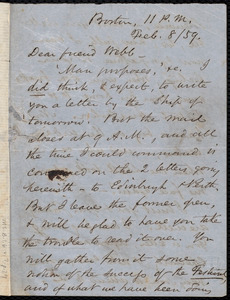 Boston, 11 P.M.
Feb. 8/59.
Dear friend Webb—
'Man purposes,' &c. I
did think, & expect, to write
you a letter by the Ship of
tomorrow. But the mail
closes at 9 A.M., and all
the time I could command is
consumed on the 2 letters going
herewith — to Edinburgh & Perth.
But I leave the former open,
& will be glad to have you take
the trouble to read it over. You
will gather from it some
notion of the success of the Festival
and of what we have been doing